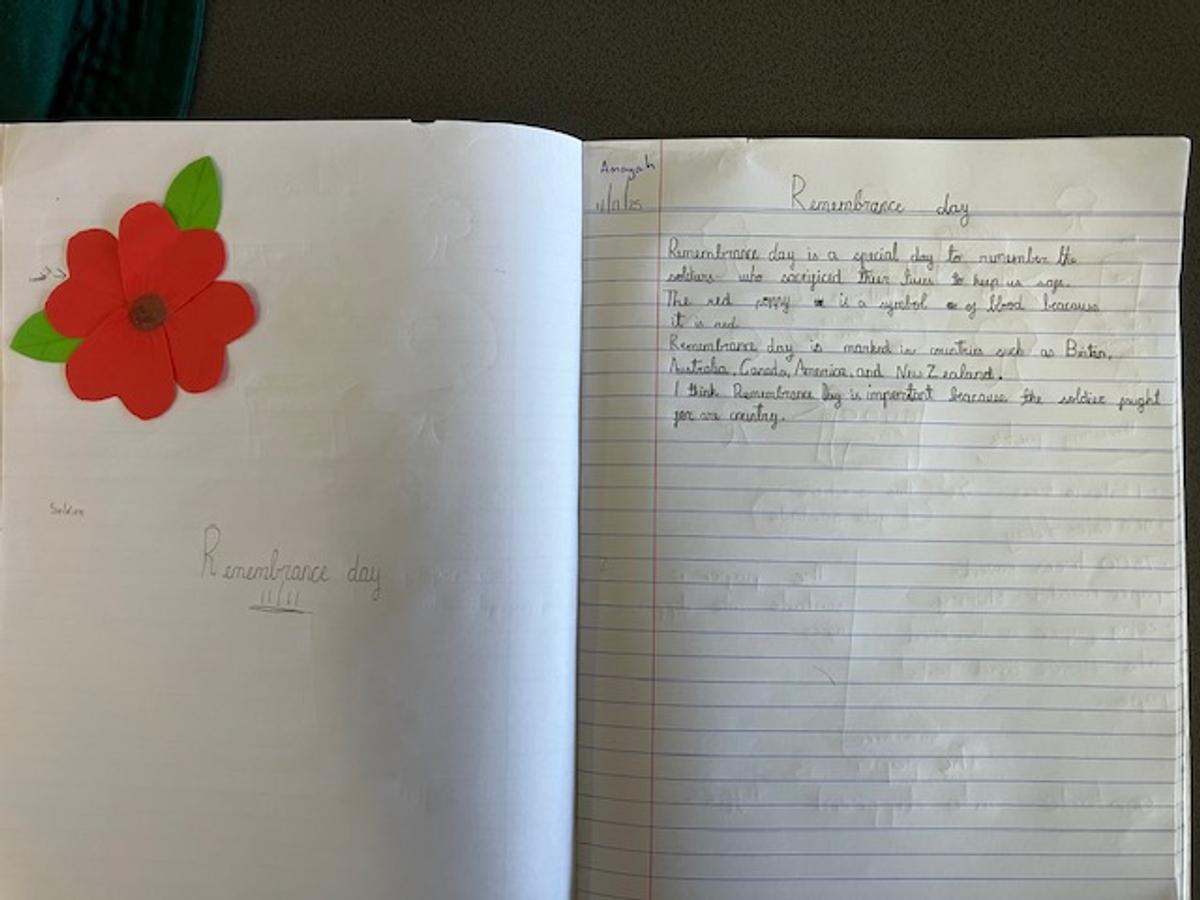 Soldier
Remembrance day
11/11
Anayah
11/11/25
Remembrance day
Remembrance day is a special day to remember the
soldiers who sacrificed their lives to keep us safe.
The red poppy is a symbol of blood beacause
it is red.
Remembrance day is marked in countries such as Britin,
Australia, Canada, America, and New Zealand.
I think Remembrance Day is imporstant beacause the soldier fought
for are country.